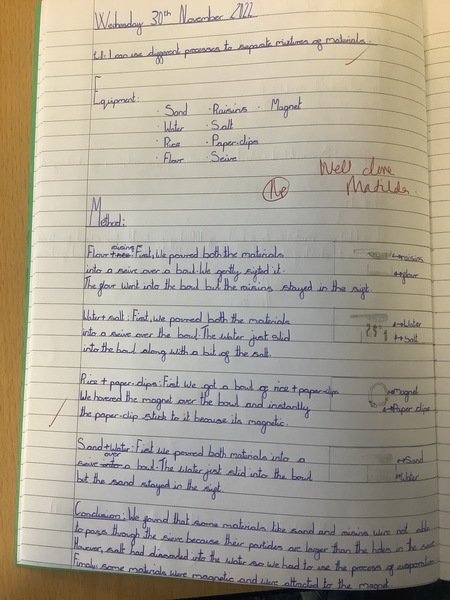 Wednesday 30th November 2022
L.I: I can use different processes to separate mixtures of materials.
Equipment:
· Sand · Raisins · Magnet
· Water · Salt
· Rice · Paper-clips
· Flour · Seive
Well done
Matilda.
Method:
Flour + raisins: First, We poured both the materials
into a seive over a bowl. We gently sifted it.
The flour went into the bowl but the raisins stayed in the sift.
→raisins
→flour
Water + salt: First, we poured both the materials
into a seive over the bowl. The water just slid
into the bowl along with a bit of the salt.
→Water
→Salt
Rice + paper-clips: First we got a bowl of rice + paper-clips
We hovered the magnet over the bowl and instantly
the paper-clip stick to it because its magnetic.
→magnet
→Paper clips
Sand + Water: First we poured both materials into a
seive over a bowl. The water just slid into the bowl
but the sand stayed in the sift.
→Sand
Water
Conclusion: We found that some materials like sand and raisins were not able
to pass through the sieve because their particles are larger than the holes in the sieve.
However, salt had dissolved into the water so we had to use the process of evaporation.
Finaly some materials were magnetic and were attracted to the magnet.